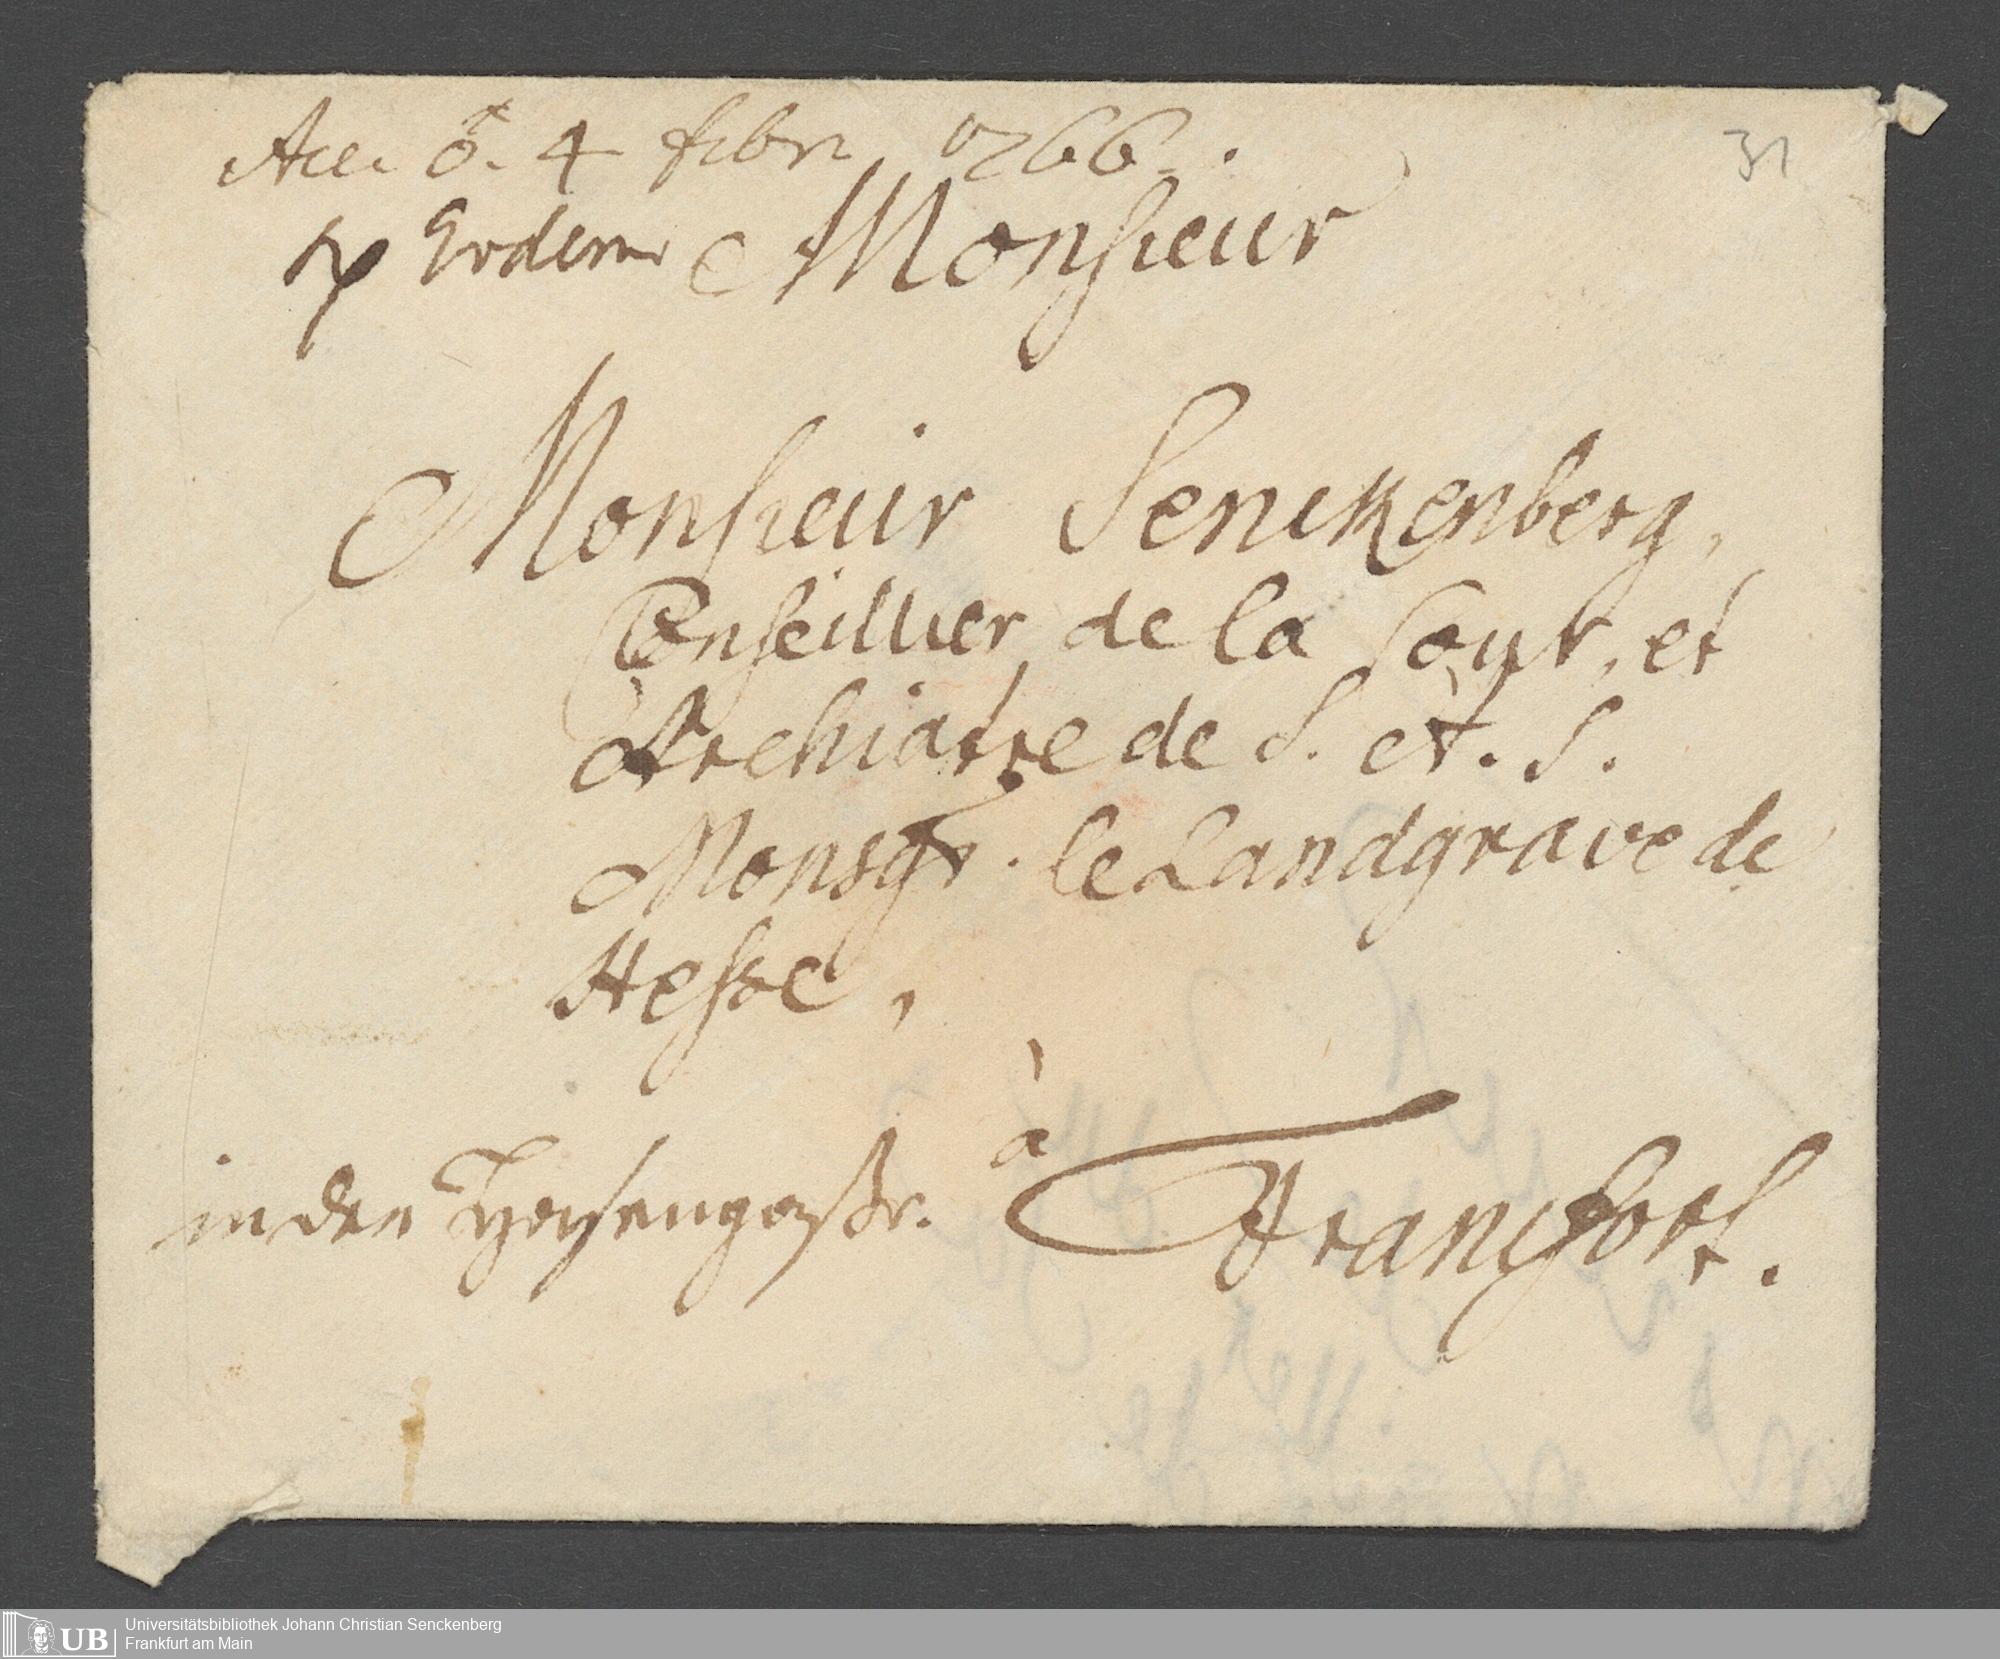 Acc. ♂. 4 febr. 1766.
31
Rp Eodem
Monsieur
Monsieur Senckenberg,
Conseillier de la Cour, et
Archiatre de S. A. S.
Monsgr. le Landgrave de
Hesse,
à
in der Hasengaße.
Francfort.
Universitätsbibliothek Johann Christian Senckenberg
UB
Frankfurt am Main